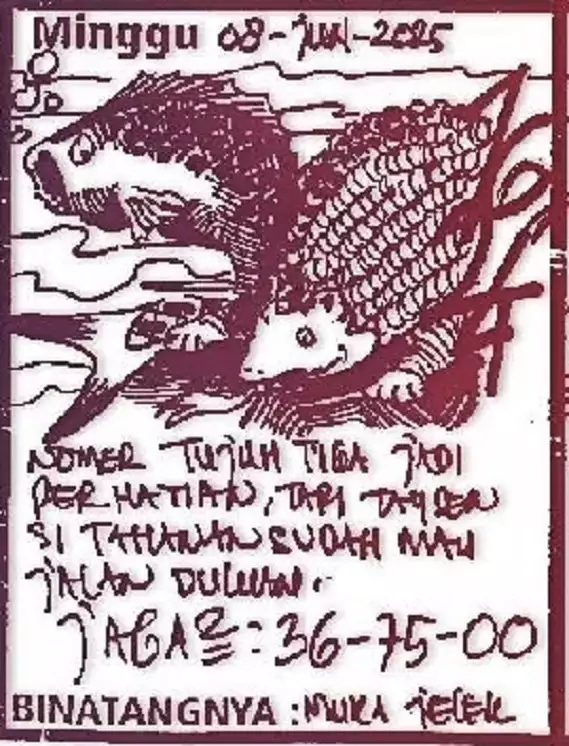 Minggu 08-JUN-2025
NOMER TUJUH TIGA JADI
PERHATIAN, TAPI TAYSEN
SI TAHANAN SUDAH MAU
JALAN DULUAN.
JAGA2 : 36-75-00
BINATANGNYA : MUKA JELEK